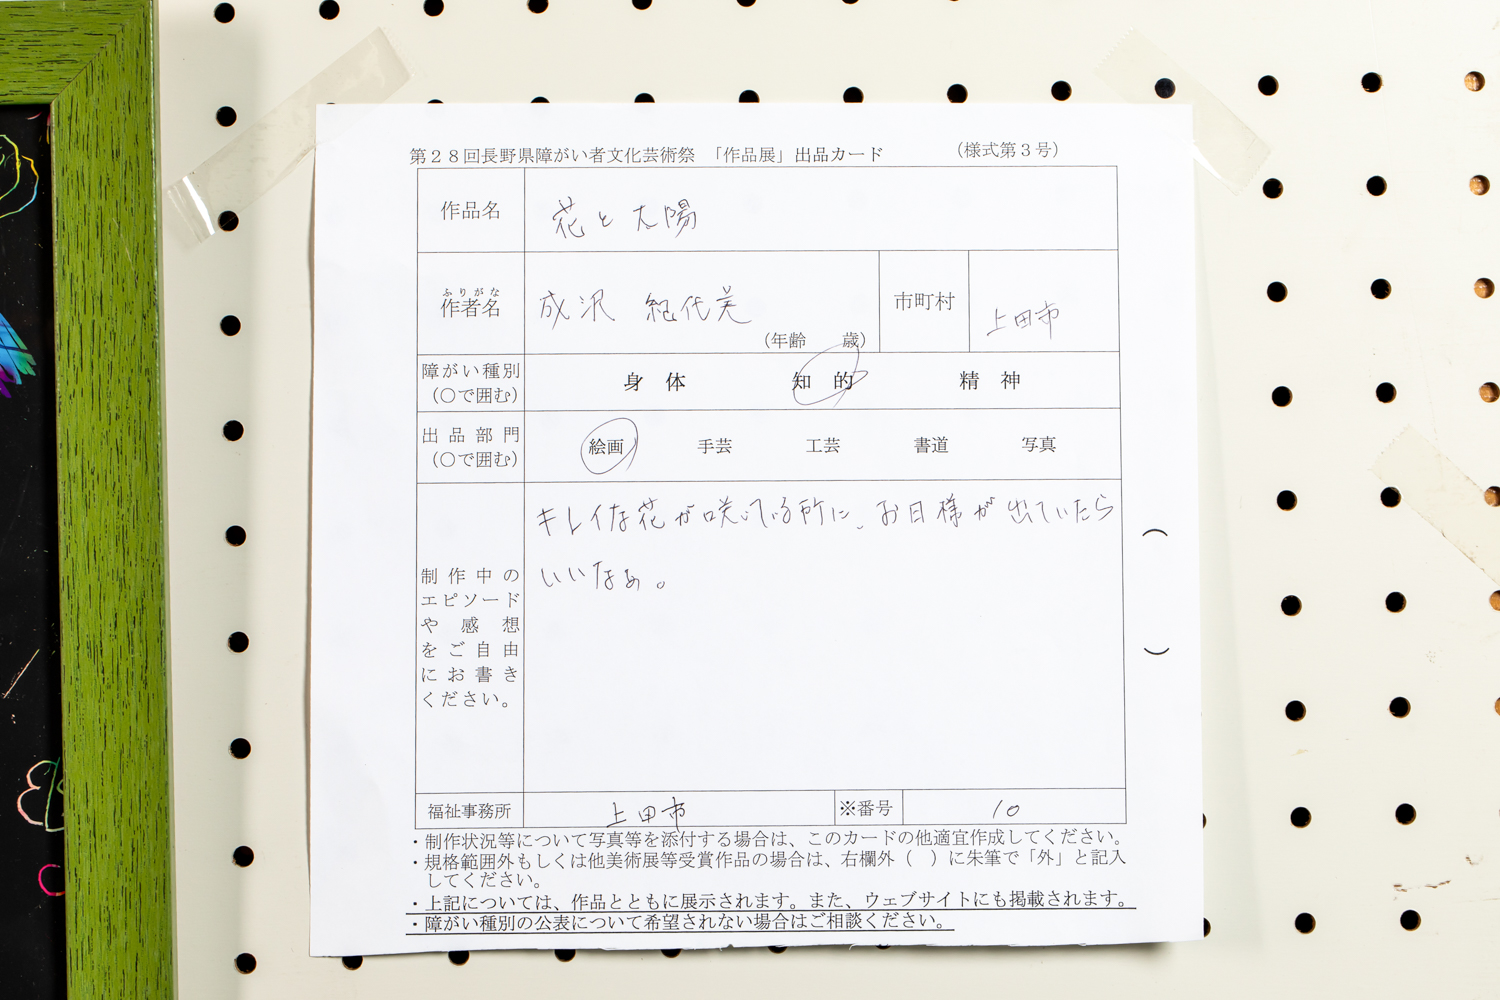 第28回長野県障がい者文化芸術祭 「作品展」出品カード (様式第3号)
作品名 花と太陽
ふりがな
作者名 成沢 紀代美 (年齢 歳) 市町村 上田市
障がい種別
(○で囲む) 身体 知的 精神
出品部門
(○で囲む) 絵画 手芸 工芸 書道 写真
キレイな花が咲いている所に、お日様が出ていたら
いいなぁ。
制作中の
エピソード
や感想
をご自由
にお書き
ください。
( )
福祉事務所 上田市 ※番号 10
・制作状況等について写真等を添付する場合は、このカードの他適宜作成してください。
・規格範囲外もしくは他美術展等受賞作品の場合は、右欄外( )に朱筆で「外」と記入
してください。
・上記については、作品とともに展示されます。また、ウェブサイトにも掲載されます。
・障がい種別の公表について希望されない場合はご相談ください。